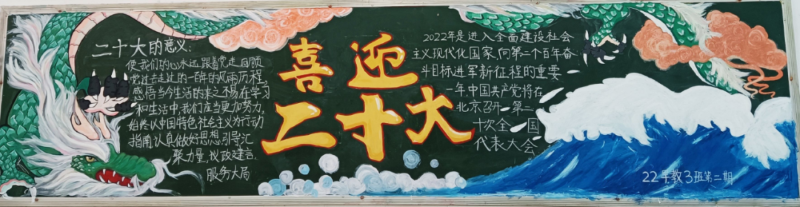 二十大的意义:
使我们的心永远跟着党走回顾
党过去走过的一百年的风雨历程,
感悟当今生活的来之不易在学习
和生活中,我们应当更加努力,
始终以中国特色社主义为行动
指南认真做好思想引导汇
聚力量,议政建言,
服务大局
喜迎
二十大
2022年是进入全面建设社会
主义现代化国家,向第二个百年奋
斗目标进军新征程的重要
一年中国共产党将在
北京召开第二
十次全国
代表大会
22学教3班第二期